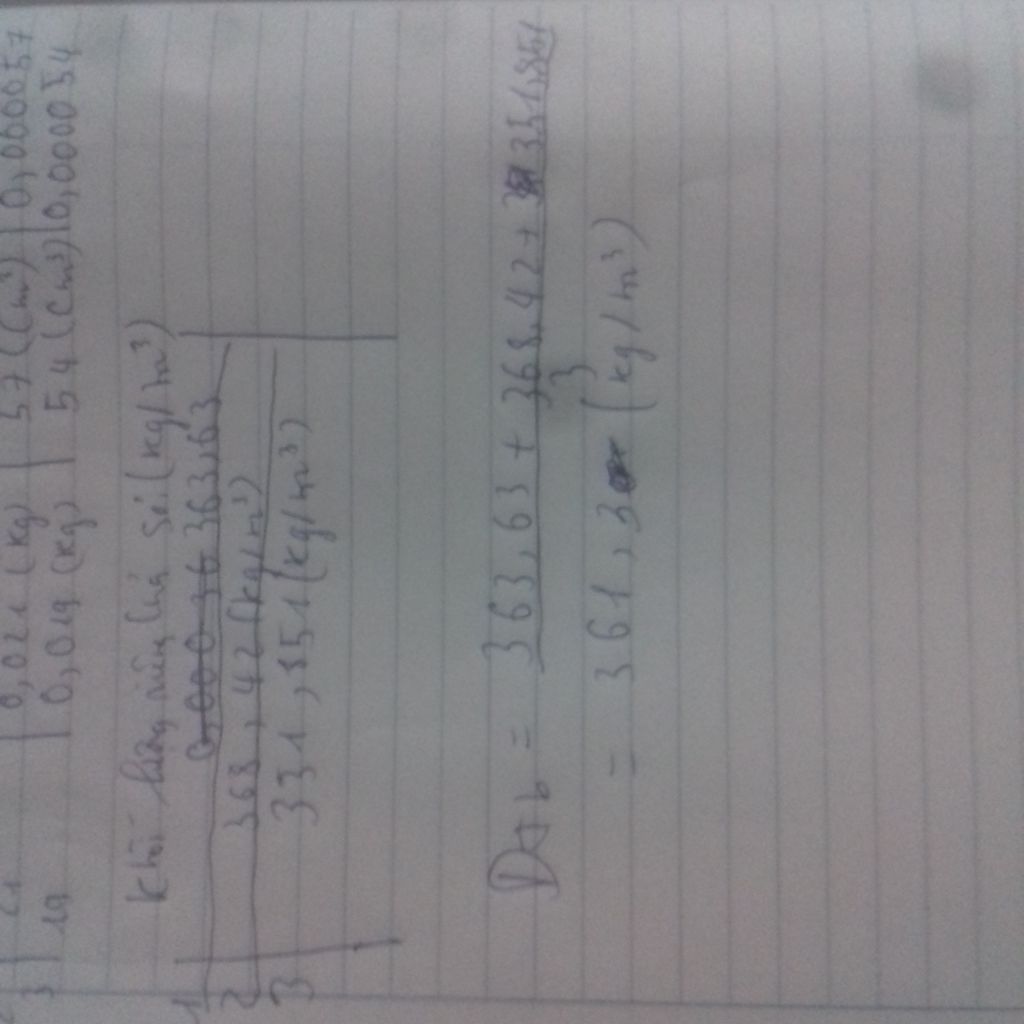 2 | 21 | 0,021 (kg) | 57 (cm³) | 0,000057
3 | 19 | 0,019 (kg) | 54 (cm³) | 0,000054
Khối lượng riêng của sỏi (kg/m³)
1 363,63
2 368,42 (kg/m³)
3 351,851 (kg/m³)
Dtb = 363,63 + 368,42 + 351,851
3
= 361,3 (kg/m³)